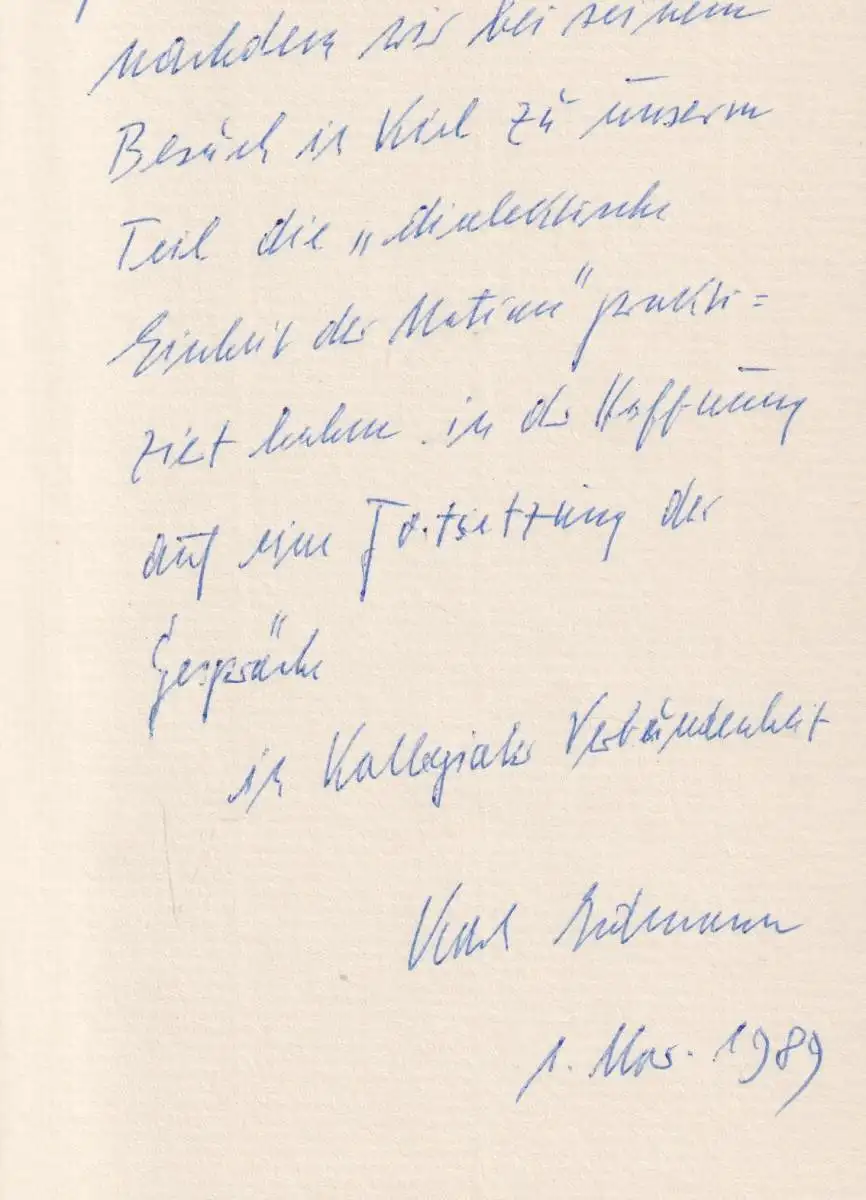 nachdem wir bei seinem
Besuch in Kiel zu unserm
Teil die „dialektische
Einheit der Nation" prakti=
ziert haben in der Hoffnung
auf eine Fortsetzung der
Gespräche
in kollegialer Verbundenheit
Karl Erdmann
1. Nov. 1989